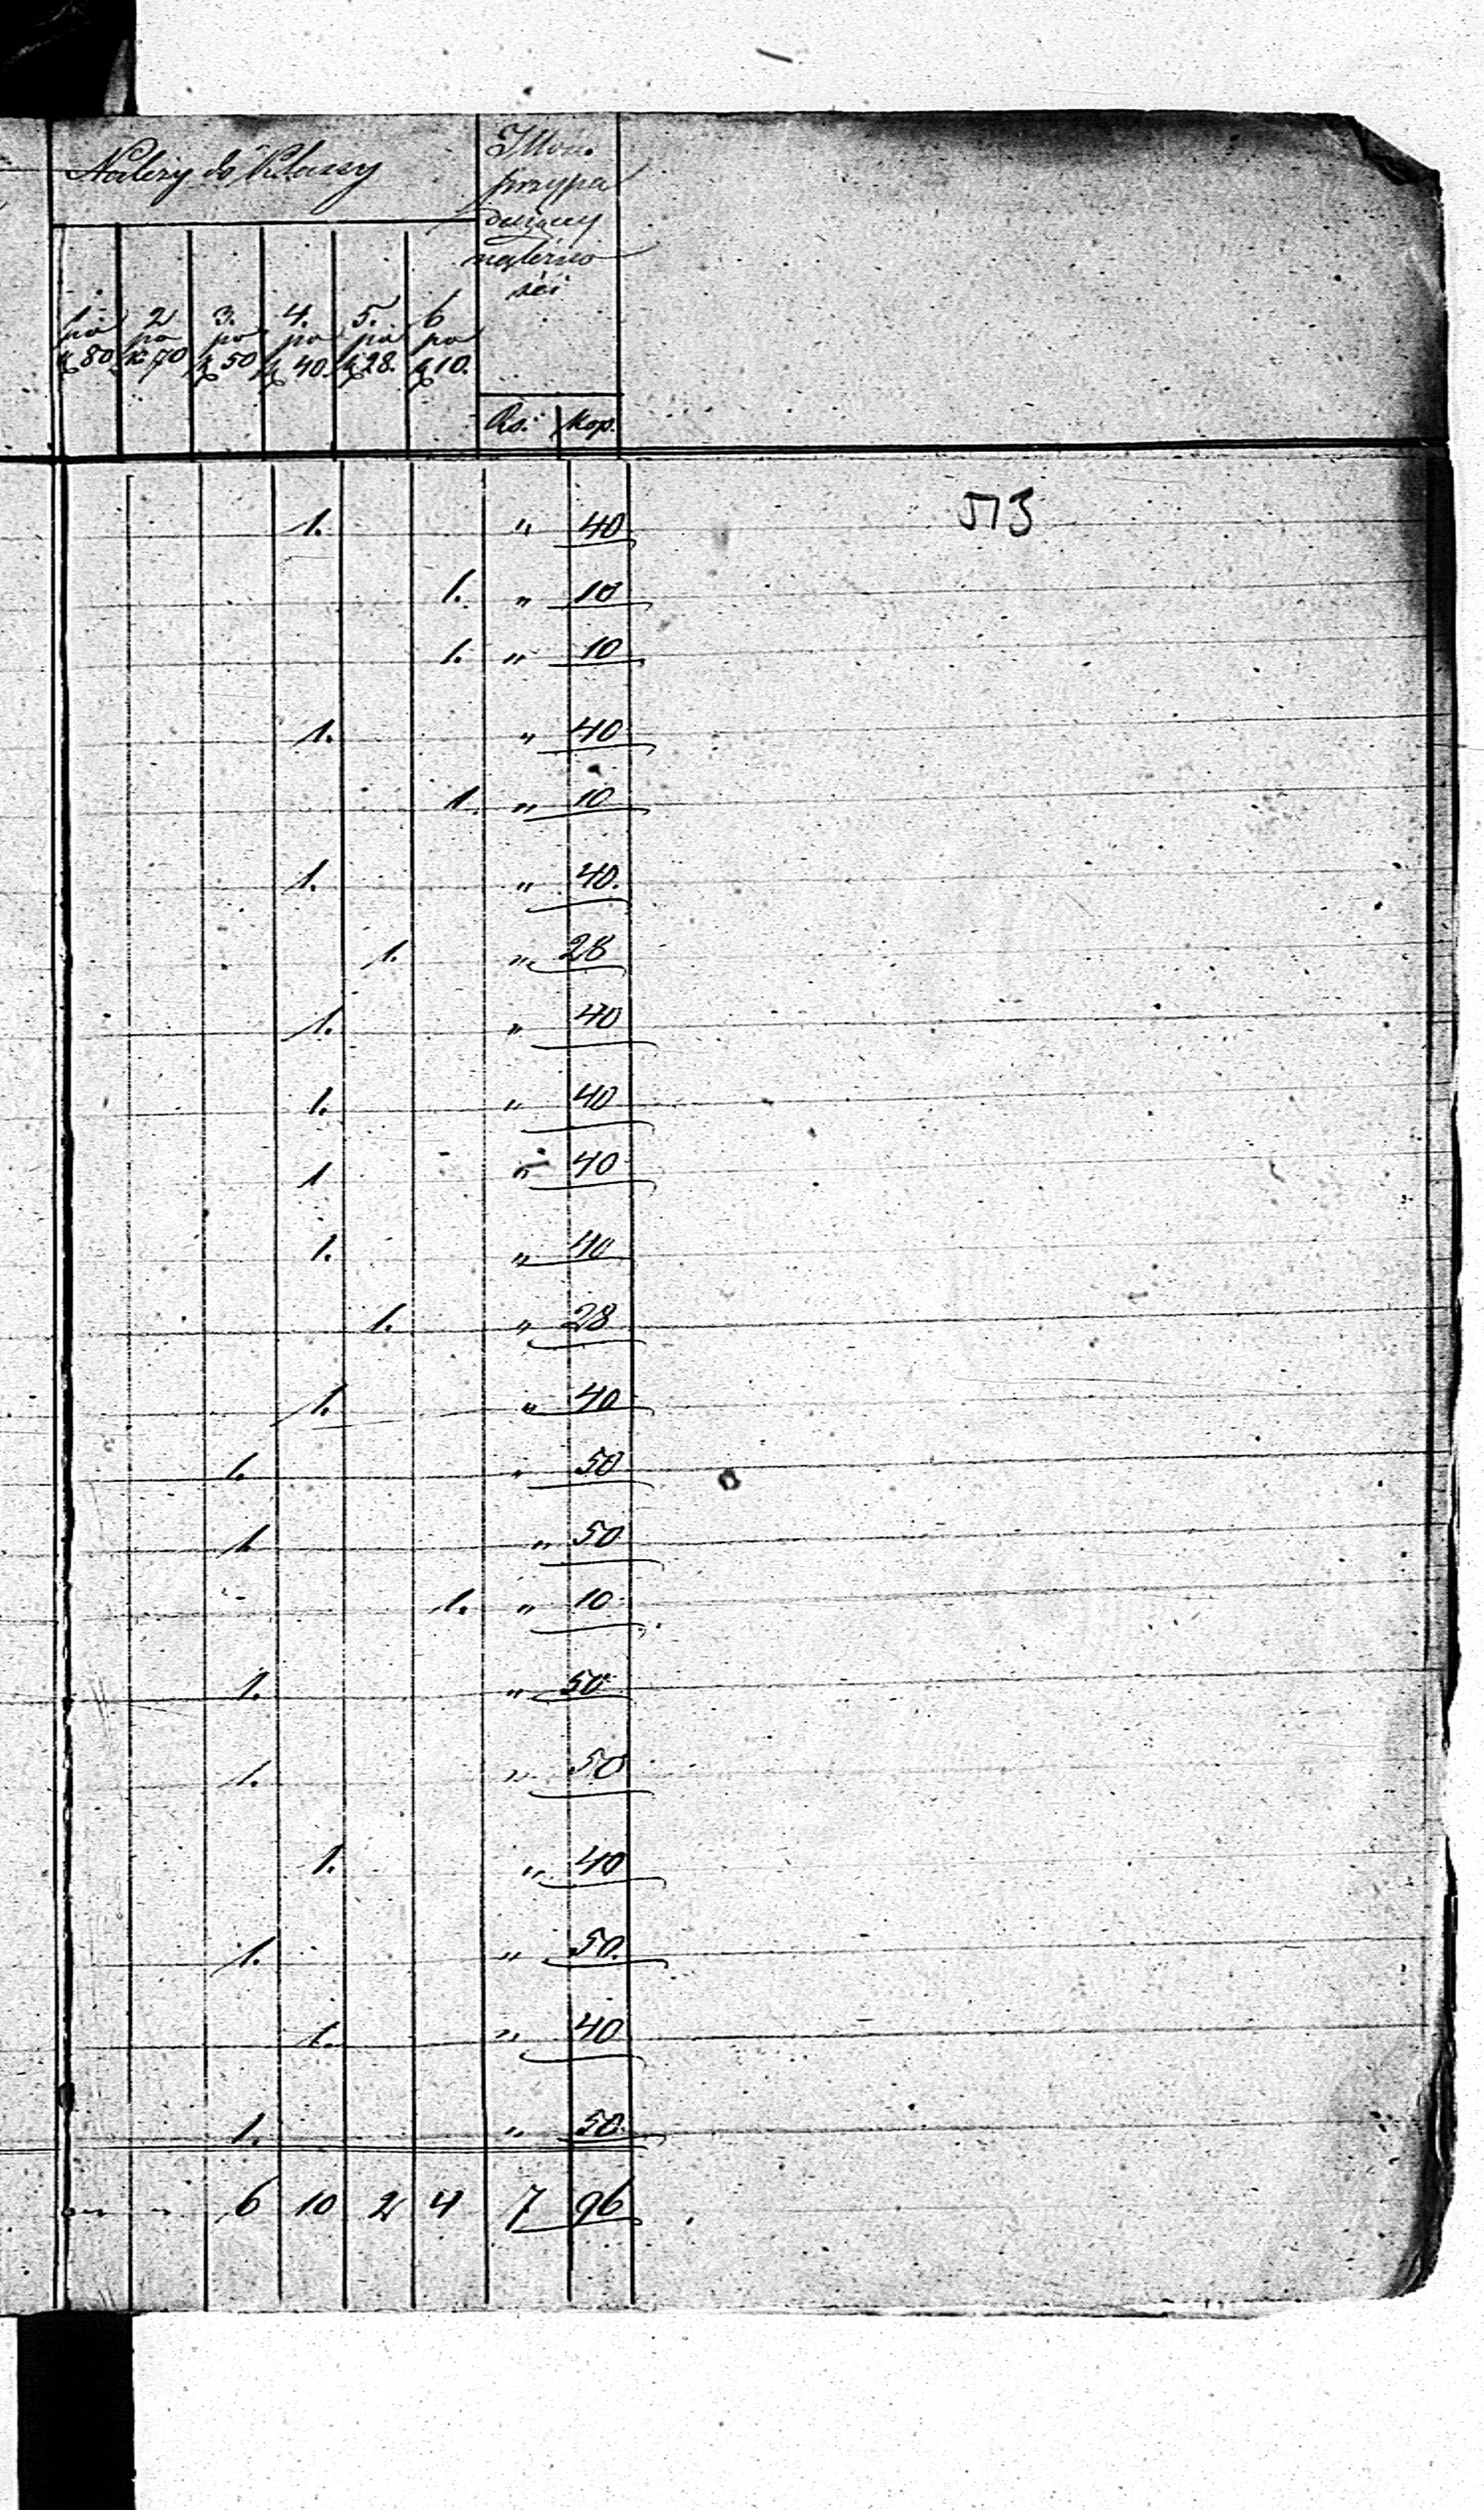 Należy do Klassy
Ilość
przypa
dającey
należno
ści
1. 2 3. 4. 5. 6
po po po po po po
k 80 k 70 k 50 k 40. k 28. k 10.
Rs. Kop.
513
1. " 40
1. " 10
1. " 10
1. " 40
1. " 10
1. " 40.
1. " 28
1. " 40
1. " 40
1 " 40
1. " 40
1. " 28
1. " 40
1. " 50
1 " 50
1. " 10
1. " 50
1. " 50
1. " 40
1. " 50.
1. " 40
1. " 50.
" " 6 10 2 4 7 96